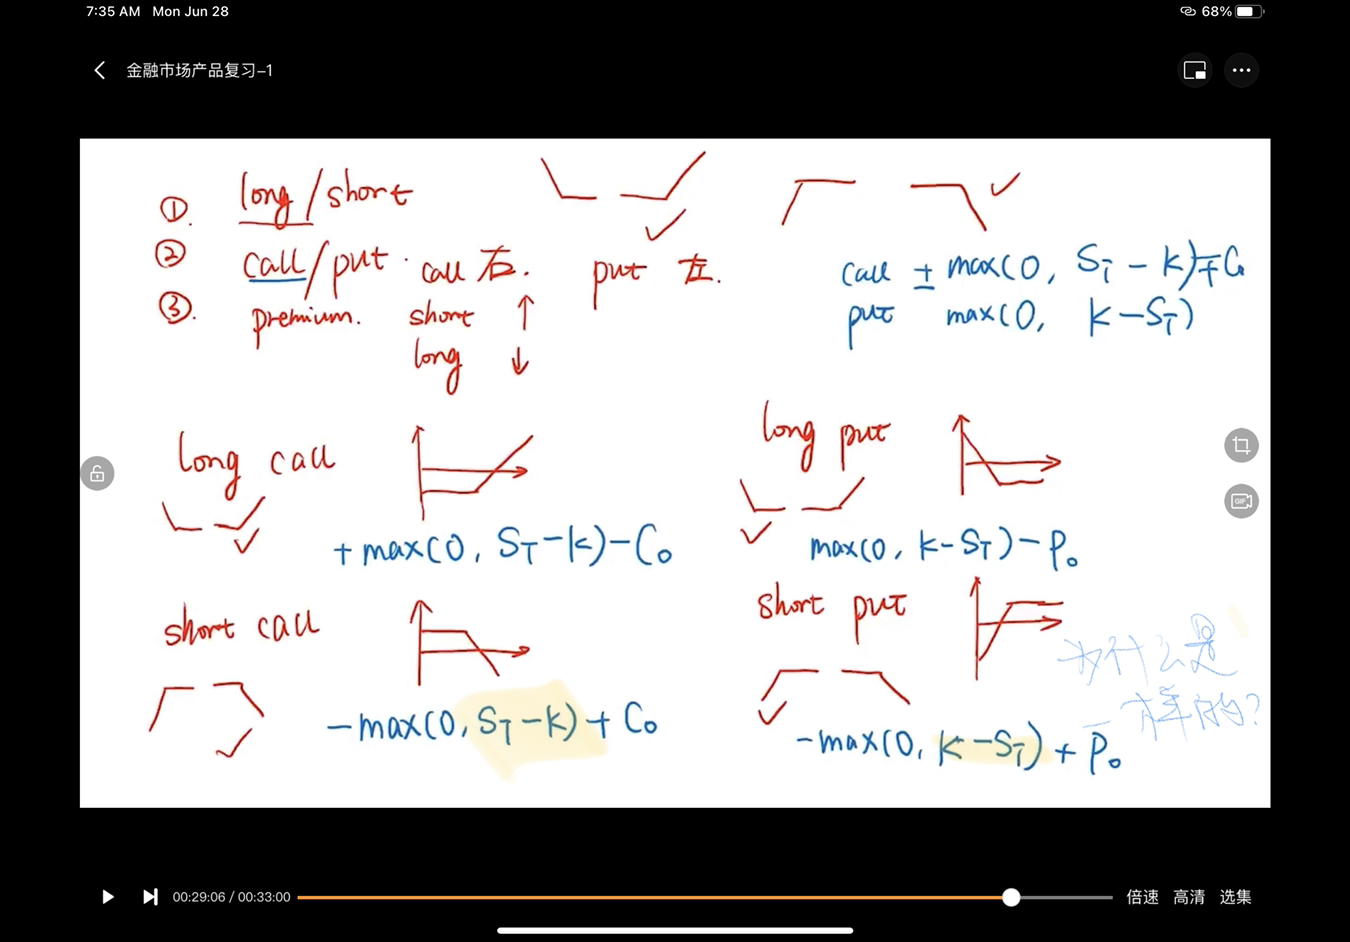 7:35 AM Mon Jun 28
68%
金融市场产品复习-1
①. long/short
② call/put. call 右. put 左.
③. premium. short ↑
long ↓
call ± max(0, S_T - K) ∓ C₀
put max(0, K - S_T)
long call
+ max(0, S_T - K) - C₀
long put
max(0, K - S_T) - P₀
short call
- max(0, S_T - K) + C₀
short put
- max(0, K - S_T) + P₀
为什么是
一样的?
GIF
00:29:06 / 00:33:00
倍速 高清 选集